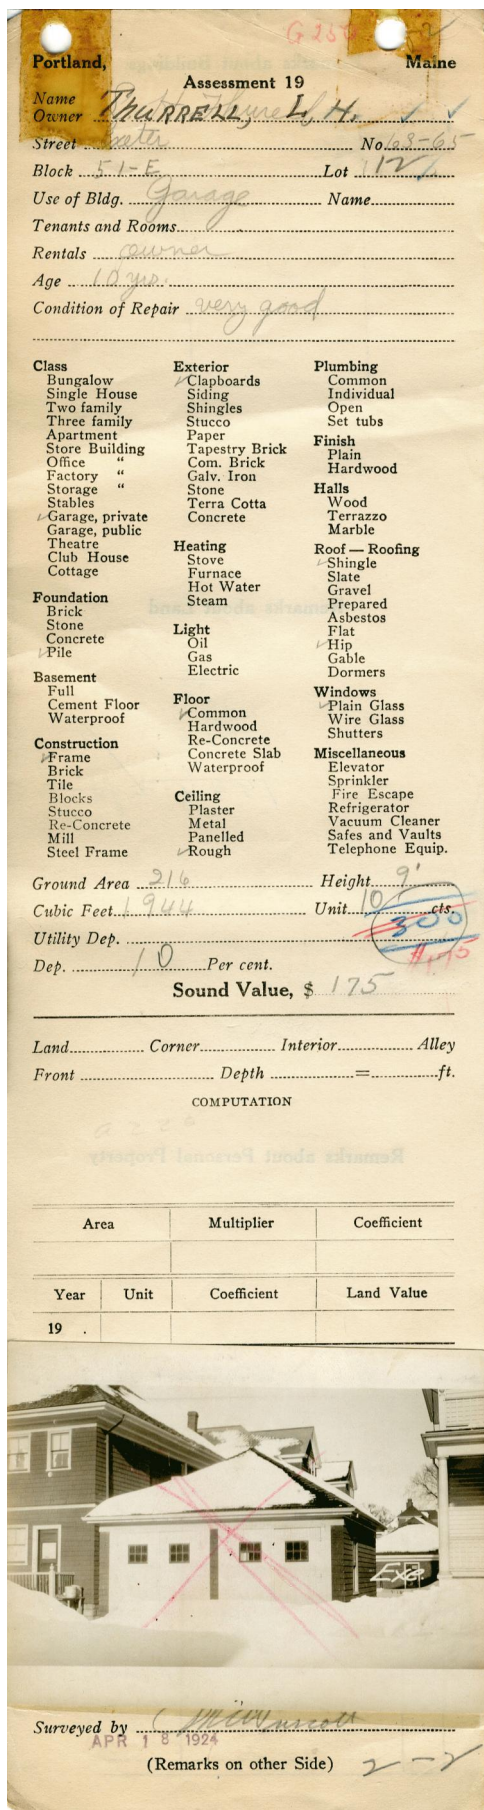 G 250 2-2
Portland, Maine
Assessment 19
Name
Owner THURRELL, L. H.
Street No 63-65
Block 51-E Lot 12
Use of Bldg. Garage Name
Tenants and Rooms
Rentals owner
Age 10 yrs.
Condition of Repair very good
Class
Bungalow
Single House
Two family
Three family
Apartment
Store Building
Office "
Factory "
Storage "
Stables
Garage, private
Garage, public
Theatre
Club House
Cottage
Foundation
Brick
Stone
Concrete
Pile
Basement
Full
Cement Floor
Waterproof
Construction
Frame
Brick
Tile
Blocks
Stucco
Re-Concrete
Mill
Steel Frame
Exterior
Clapboards
Siding
Shingles
Stucco
Paper
Tapestry Brick
Com. Brick
Galv. Iron
Stone
Terra Cotta
Concrete
Heating
Stove
Furnace
Hot Water
Steam
Light
Oil
Gas
Electric
Floor
Common
Hardwood
Re-Concrete
Concrete Slab
Waterproof
Ceiling
Plaster
Metal
Panelled
Rough
Plumbing
Common
Individual
Open
Set tubs
Finish
Plain
Hardwood
Halls
Wood
Terrazzo
Marble
Roof — Roofing
Shingle
Slate
Gravel
Prepared
Asbestos
Flat
Hip
Gable
Dormers
Windows
Plain Glass
Wire Glass
Shutters
Miscellaneous
Elevator
Sprinkler
Fire Escape
Refrigerator
Vacuum Cleaner
Safes and Vaults
Telephone Equip.
Ground Area 216 Height 9'
Cubic Feet 1944 Unit 10 cts.
300
Utility Dep.
$175
Dep. 10 Per cent.
Sound Value, $ 175
Land Corner Interior Alley
Front Depth = ft.
COMPUTATION
Remarks about Personal Property
Area Multiplier Coefficient
Year Unit Coefficient Land Value
19 .
Exe.
Surveyed by
APR 18 1924
(Remarks on other Side)
2-2